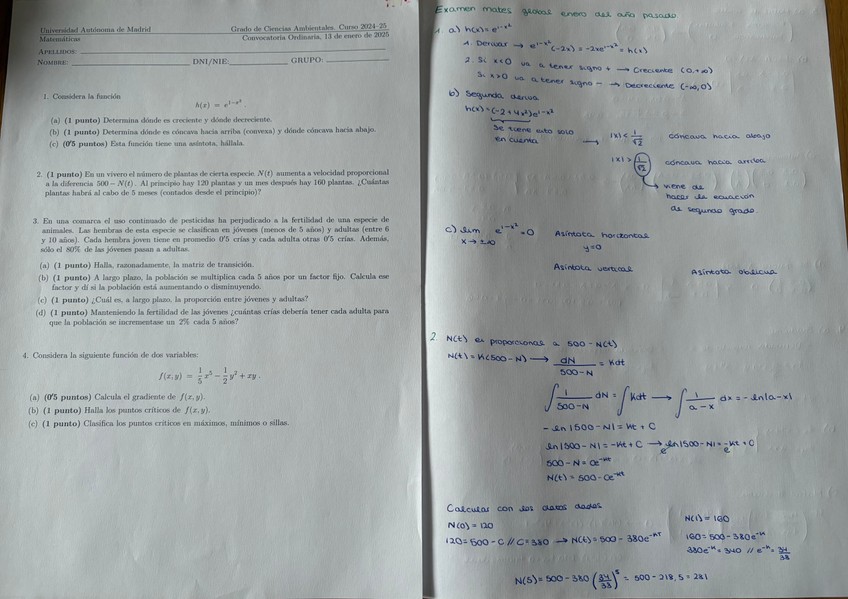 Universidad Autónoma de Madrid Grado de Ciencias Ambientales. Curso 2024-25
Matemáticas Convocatoria Ordinaria, 13 de enero de 2025
APELLIDOS:
NOMBRE: DNI/NIE: GRUPO:
1. Considera la función
h(x) = e^{1-x²}.
(a) (1 punto) Determina dónde es creciente y dónde decreciente.
(b) (1 punto) Determina dónde es cóncava hacia arriba (convexa) y dónde cóncava hacia abajo.
(c) (0'5 puntos) Esta función tiene una asíntota, hállala.
2. (1 punto) En un vivero el número de plantas de cierta especie N(t) aumenta a velocidad proporcional
a la diferencia 500 − N(t). Al principio hay 120 plantas y un mes después hay 160 plantas. ¿Cuántas
plantas habrá al cabo de 5 meses (contados desde el principio)?
3. En una comarca el uso continuado de pesticidas ha perjudicado a la fertilidad de una especie de
animales. Las hembras de esta especie se clasifican en jóvenes (menos de 5 años) y adultas (entre 6
y 10 años). Cada hembra joven tiene en promedio 0'5 crías y cada adulta otras 0'5 crías. Además,
sólo el 80% de las jóvenes pasan a adultas.
(a) (1 punto) Halla, razonadamente, la matriz de transición.
(b) (1 punto) A largo plazo, la población se multiplica cada 5 años por un factor fijo. Calcula ese
factor y dí si la población está aumentando o disminuyendo.
(c) (1 punto) ¿Cuál es, a largo plazo, la proporción entre jóvenes y adultas?
(d) (1 punto) Manteniendo la fertilidad de las jóvenes ¿cuántas crías debería tener cada adulta para
que la población se incrementase un 2% cada 5 años?
4. Considera la siguiente función de dos variables:
f(x, y) = 1/5 x⁵ − 1/2 y² + xy .
(a) (0'5 puntos) Calcula el gradiente de f(x, y).
(b) (1 punto) Halla los puntos críticos de f(x, y).
(c) (1 punto) Clasifica los puntos críticos en máximos, mínimos o sillas.
Examen mates global enero del año pasado
1. a) h(x) = e^{1-x²}
1. Derivar → e^{1-x²}(-2x) = -2xe^{1-x²} = h(x)
2. Si x<0 va a tener signo + → Creciente (0,+∞)
Si x>0 va a tener signo - → Decreciente (-∞,0)
b) Segunda deriva
h(x) = (-2+4x²)e^{1-x²}
Se tiene esto solo
en cuenta → |x| < 1/√2 cóncava hacia abajo
|x| > 1/√2 cóncava hacia arriba
viene de
hacer la ecuación
de segundo grado.
c) lim x→±∞ e^{1-x²} = 0 Asíntota horizontal
y=0
Asíntota vertical Asíntota oblicua
2. N(t) es proporcional a 500 - N(t)
N(t) = K(500-N) → dN/500-N = Kdt
∫ 1/500-N dN = ∫ Kdt → ∫ 1/a-x dx = -ln|a-x|
-ln|500-N| = Kt + C
ln|500-N| = -Kt + C → e^{ln|500-N|} = e^{-Kt+C}
500-N = Ce^{-Kt}
N(t) = 500 - Ce^{-Kt}
Calcular con los datos dados
N(0) = 120 N(1) = 160
120 = 500 - C // C = 380 → N(t) = 500 - 380e^{-KT} 160 = 500 - 380e^{-K}
380e^{-K} = 340 // e^{-K} = 34/38
N(5) = 500 - 380 (34/38)⁵ = 500 - 218,5 = 281